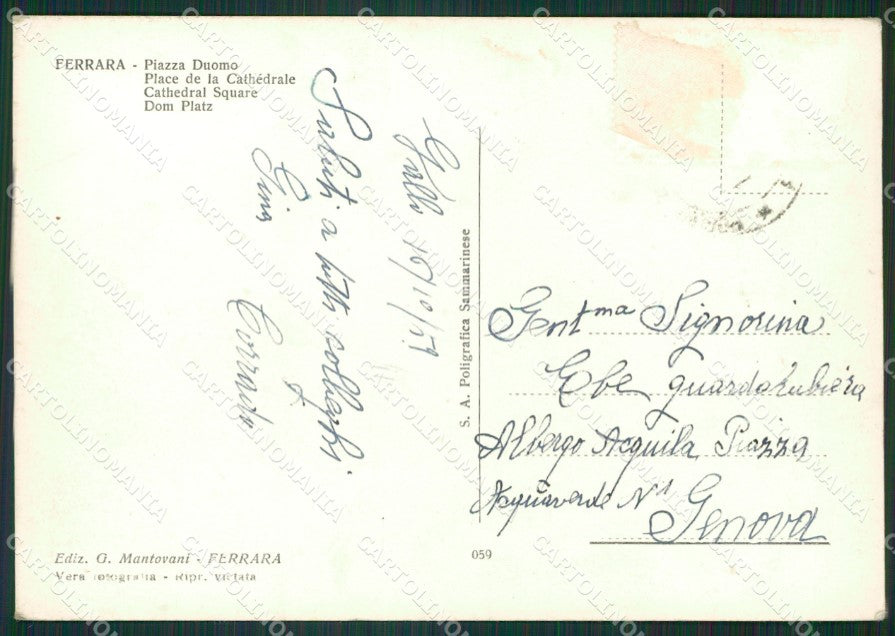 FERRARA - Piazza Duomo
Place de la Cathédrale
Cathedral Square
Dom Platz
16/10/
Saluti a tutti colleghi
Gina
Corrado
S. A. Poligrafica Sammarinese
Gent.ma Signorina
Ebe guardarubiera
Albergo Acquila Piazza
Acquaverde N° 1
Genova
Ediz. G. Mantovani - FERRARA
Vera fotografia - Ripr. vietata
059
CARTOLINOMANIA